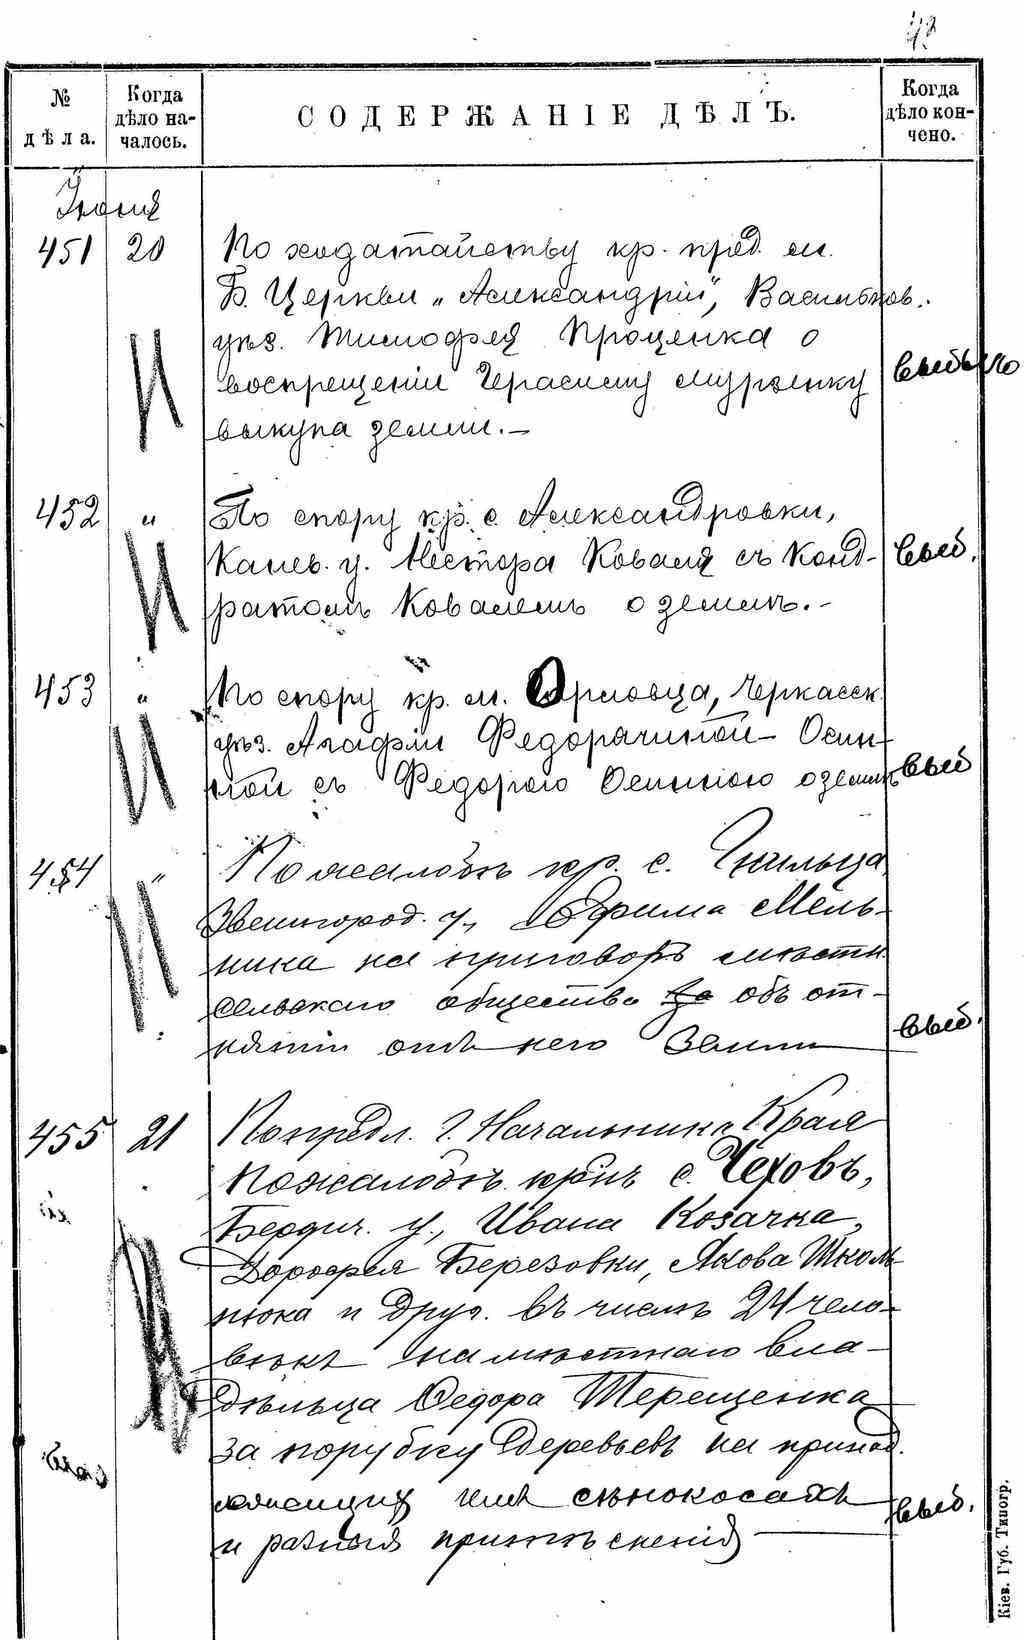 № дѣла.
Когда дѣло на-чалось.
СОДЕРЖАНІЕ ДѢЛЪ.
Когда дѣло кон-чено.
Іюня
451 20 По ходатайству кр. пред. м.
Б. Церкви „Александрія", Васильков.
уѣз. Тимофея Проценка о
воспрещеніи Герасиму Мурзенку
выкупа земли.—
выбыло
452 " По спору кр. с. Александровки,
Канев. у. Нестора Коваля съ Конд-
ратомъ Ковалемъ о землѣ.-
выб.
453 " По спору кр. м. Орловца, Черкасск.
уѣз. Агафіи Федорачиной-Осин-
ной съ Федорою Осинною о землѣ
выб
454 " По жалобѣ кр. с. Гнильца
Звенигород. у., Ефима Мель-
ника на приговоръ мѣстн.
сельскаго общества объ от-
нятіи отъ него Земли
выб.
455 21 По предл. Г. Начальника Края
по жалобѣ кр-нъ с. Чеховъ,
Бердич. у., Ивана Козачка,
Дорофея Березовки, Якова Школь-
нюка и друг. въ числѣ 24 чело-
вѣкъ на мѣстнаго вла-
дѣльца Федора Терещенка
за порубку деревьевъ на принад.
лежащихъ имъ сѣнокосахъ
и разныя притѣсненія
выб.
Кіев. Губ. Типогр.